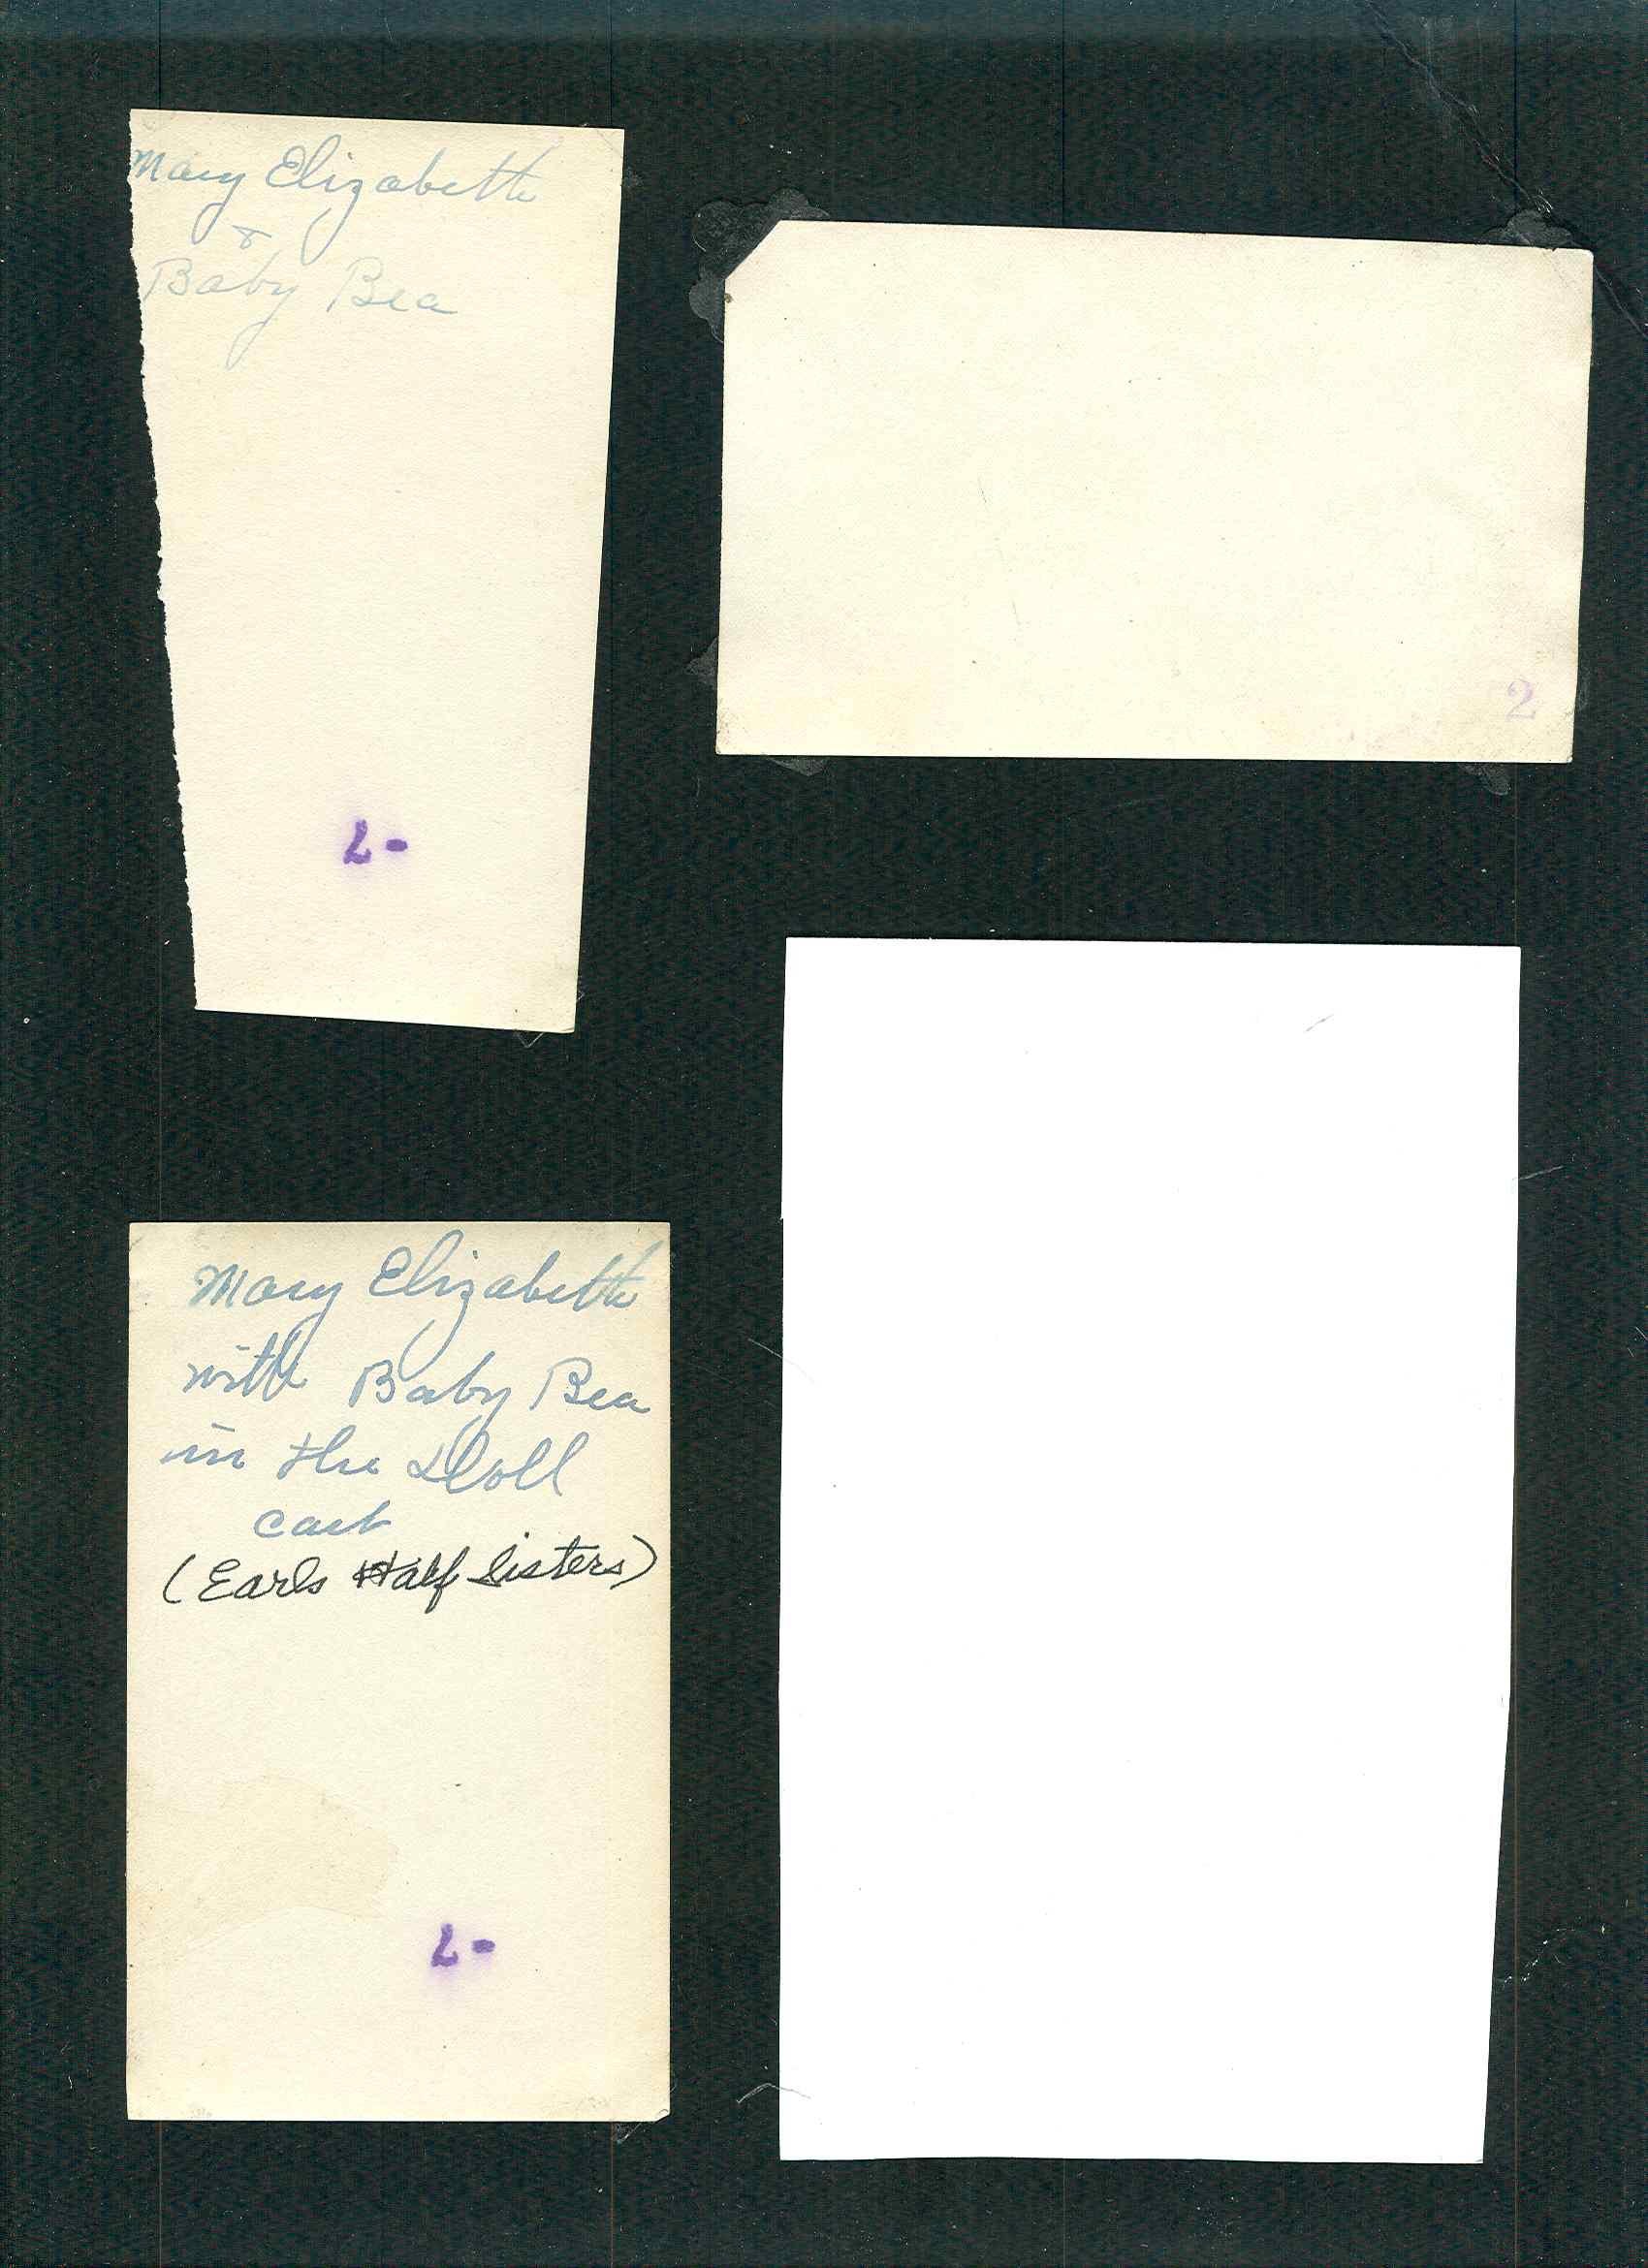 Mary Elizabeth
&
Baby Bea
2-
2
Mary Elizabeth
with Baby Bea
in the Doll
cart
(Earls Half Sisters)
2-